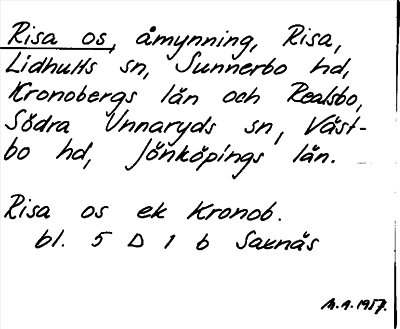 Risa os, åmynning, Risa,
Lidhults sn, Sunnerbo hd,
Kronobergs län och Realsbo,
Södra Unnaryds sn, Väst-
bo hd, Jönköpings län.
Risa os ek Kronob.
bl. 5 D 1 b Saxnäs
M.A. 1957.